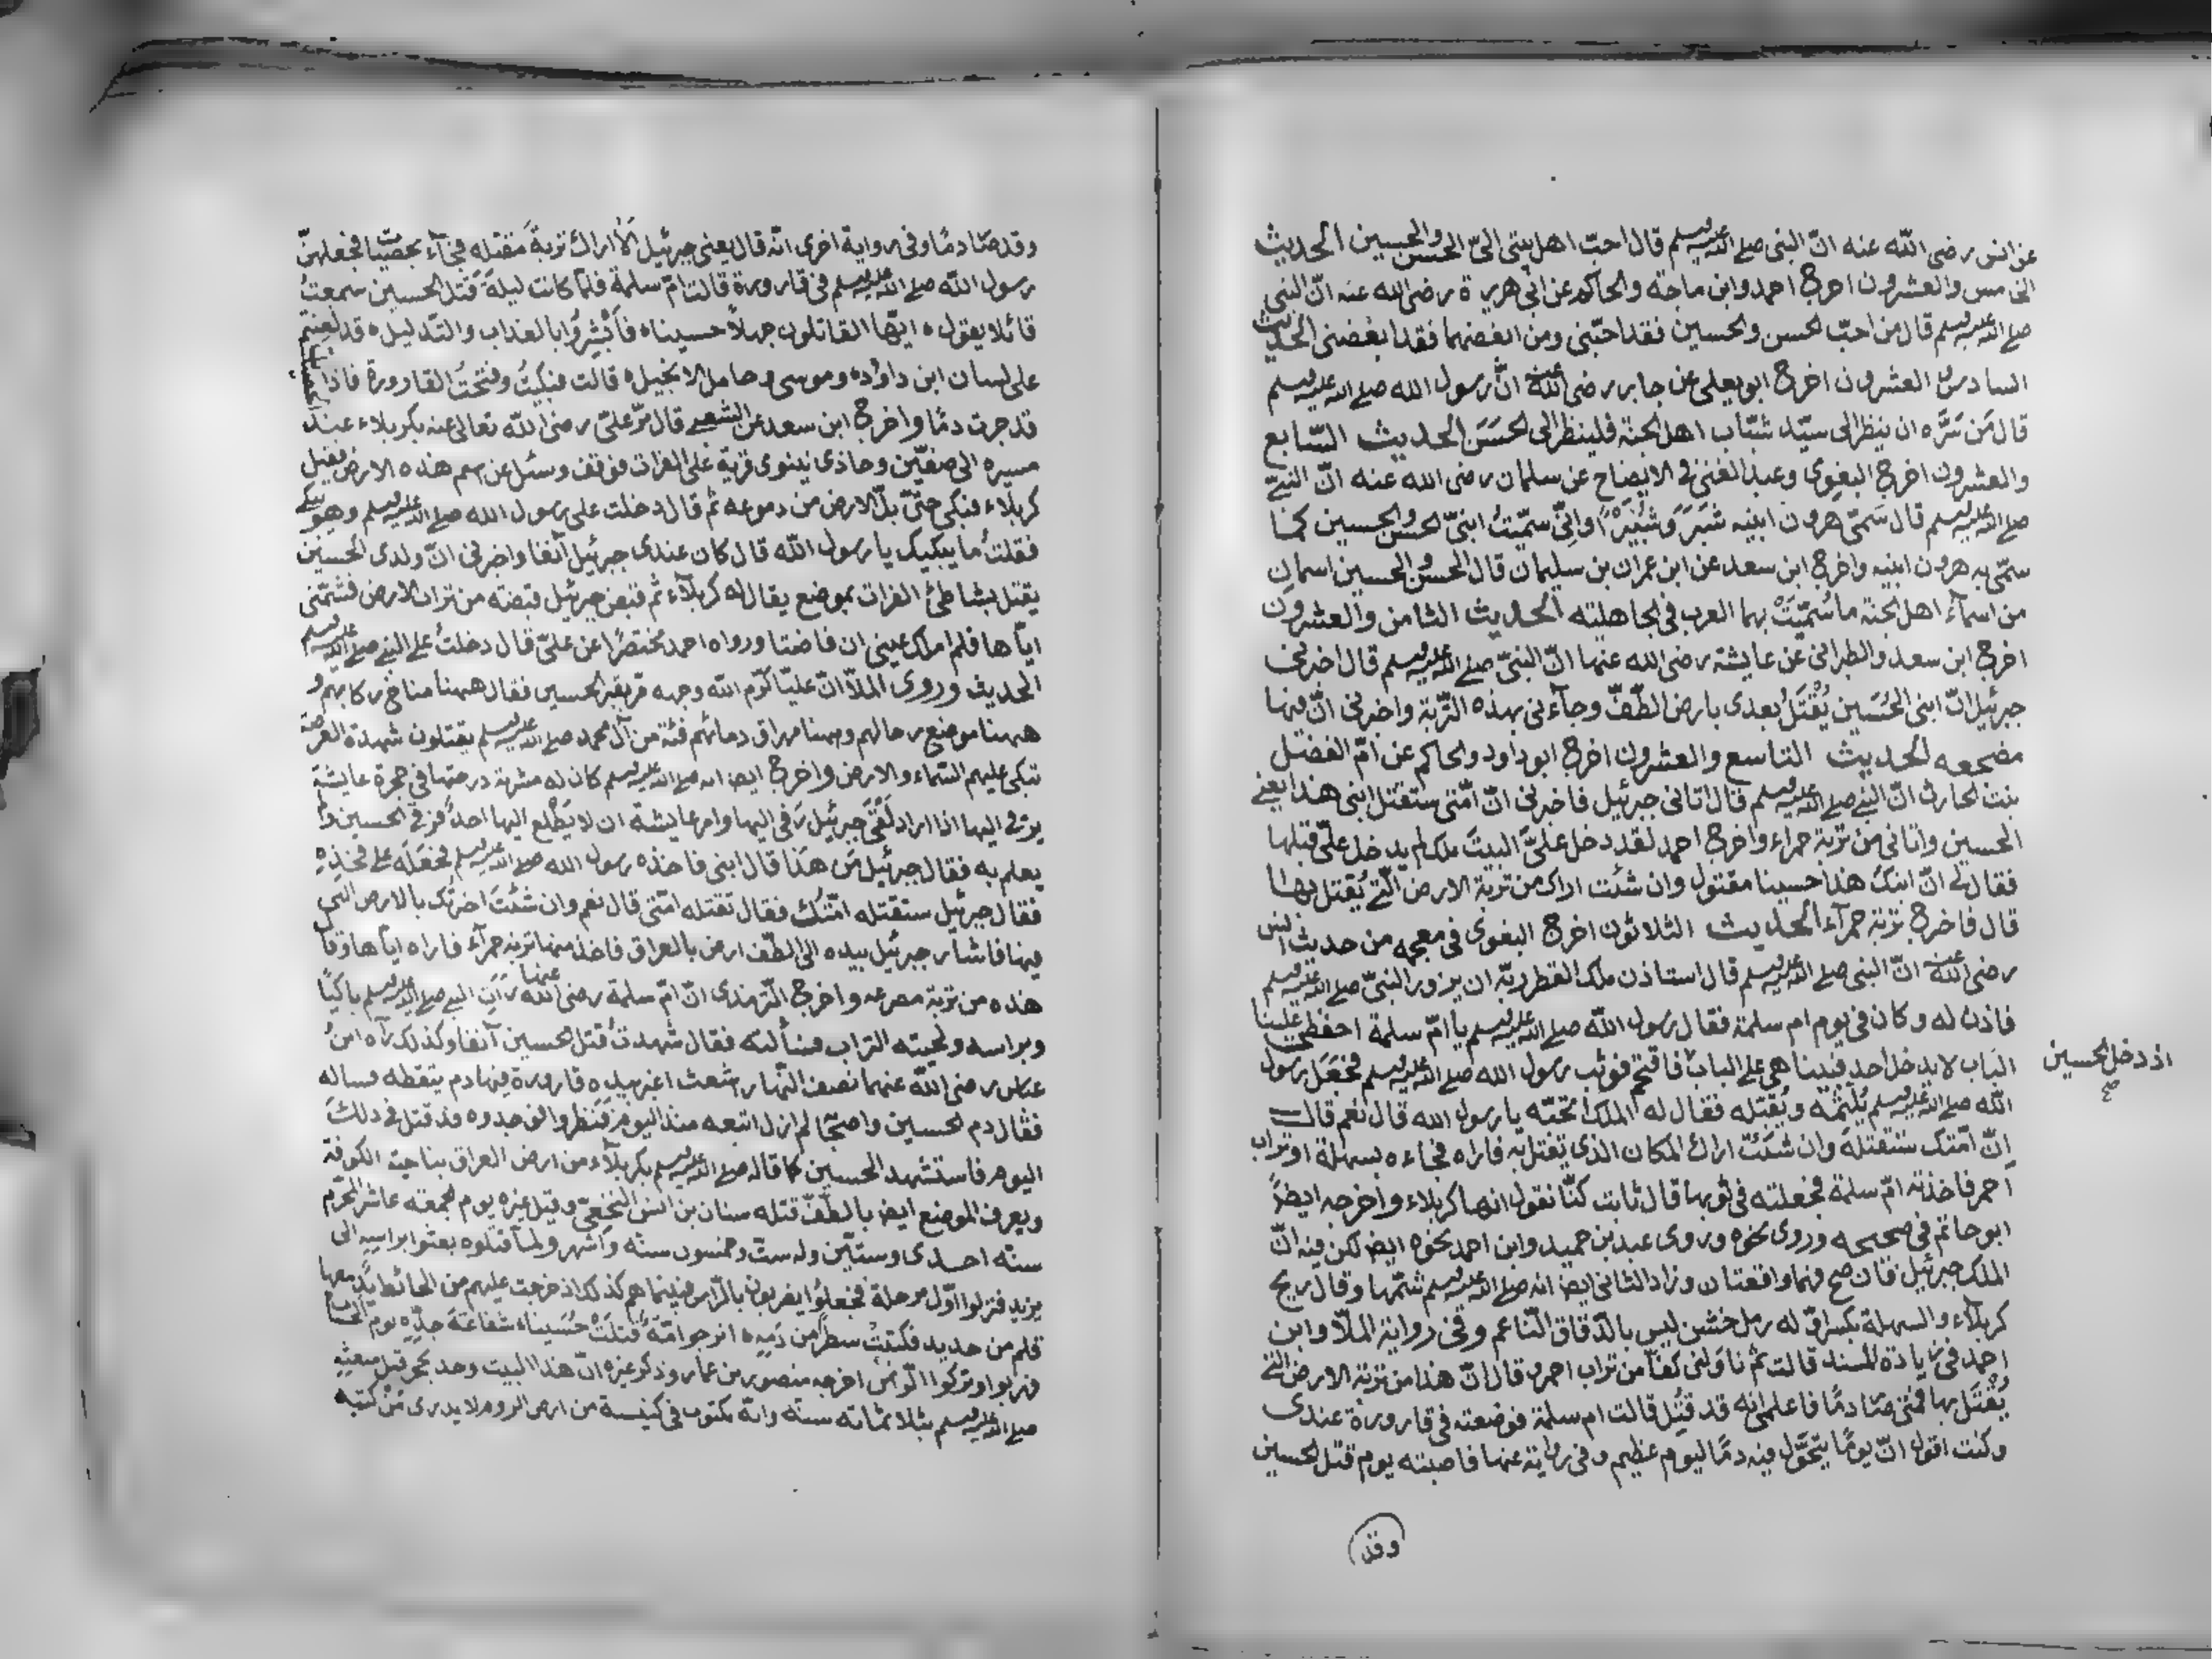 عن انس رضى الله عنه انّ النبى صلى الله عليه وسلم قال احبّ اهل بيتى الىّ الحسن والحسين الحديث
الخامس والعشرون اخرج احمد وابن ماجة والحاكم عن ابى هريرة رضى الله عنه انّ النبى
صلى الله عليه وسلم قال من احبّ الحسن والحسين فقد احبّنى ومن ابغضهما فقد ابغضنى الحديث
السادس والعشرون اخرج ابو يعلى عن جابر رضى الله عنه انّ رسول الله صلى الله عليه وسلم
قال مَن سَرَّه ان ينظر الى سيّد شباب اهل الجنة فلينظر الى الحسَن الحديث السّابع
والعشرون اخرج البغوى وعبد الغنى فى الايضاح عن سلمان رضى الله عنه انّ النبى
صلى الله عليه وسلم قال سَمّى هرون ابنيه شَبَرَ وَشُبَيْرًا وانّى سمّيتُ ابنىّ الحسن والحسين كما
سمّى به هرون ابنيه واخرج ابن سعد عن ابن عمران بن سليمان قال الحسن والحسين اسمان
من اسمآء اهل الجنة ما سُمّيَتْ بهما العرب فى الجاهلية الحديث الثامن والعشرون
اخرج ابن سعد والطبرانى عن عايشة رضى الله عنها انّ النبىّ صلى الله عليه وسلم قال اخبرنى
جبرئيل انّ ابنى الحُسَين يُقْتَلُ بعدى بارض الطّفّ وجآءنى بهذه التّربة واخبرنى انّ فيها
مضجعه الحديث التاسع والعشرون اخرج ابو داود والحاكم عن امّ الفضل
بنت الحارث انّ النبى صلى الله عليه وسلم قال اتانى جبرئيل فاخبرنى انّ امّتى ستقتل ابنى هذا يعنى
الحسين واتانى من تربة حمراء واخرج احمد لقد دخل علىَّ البيتَ ملك لم يدخل علىّ قبلها
فقال لى انّ ابنكَ هذا حسينا مقتول وان شئت اراك من تربة الارض الّتى يُقتل بها
قال فاخرج تربة حمرآء الحديث الثلاثون اخرج البغوى فى معجمه من حديث انس
رضى الله عنه انّ النبى صلى الله عليه وسلم قال استاذن ملك القطر ربّه ان يزور النبىّ صلى الله عليه وسلم
فاذن له وكان فى يوم ام سلمة فقال رسول الله صلى الله عليه وسلم يا امّ سلمة احفظى علينا
البَاب لا يدخل احد فبينا هى على الباب فاقتحم فوثب رسول الله صلى الله عليه وسلم فجعَل رسول
اذ دخل الحسين صح
الله صلى الله عليه وسلم يُلثمُه ويُقبّله فقال له الملك اتحبّه يا رسول الله قال نَعم قال
انّ امّتك ستقتلهَ وان شئت اراك المكان الذى يقتل به فاراه فجاءه بسهلة او تراب
احمر فاخذته امّ سلمة فجعلته فى ثوبها قال ثابت كنّا نقول انها كربلاء واخرجه ايضًا
ابو حاتم فى صحيحه وروى نحوه وروى عبد بن حميد وابن احمد نحوه ايضا لكن فيه انّ
الملك جبرئيل فان صح فهما واقعتان وزاد الثانى ايضا انه صلى الله عليه وسلم شمّها وقال ريح
كربلآء والسهلة بكسر اوّله رمل خشن ليس بالدّقاق النّاعم وفى رواية الملّا وابن
احمد فى زيادة المسند قالت ثم ناولنى كفًا من تراب احمر وقال انّ هذا من تربة الارض التى
يُقتل بها فمتى صَار دمًا فاعلمى انه قد قُتِل قالت ام سلمة فوضعته فى قارورة عندى
وكنت اقول انّ يومًا يتحَوّل فيه دمًا ليوم عظيم وفى رواية عنها فاصبته يوم قتل الحسين
وقد
وقد صَار دمًا وفى رواية اخرى انّه قال يعنى جبرئيل اَلَا اراك تربةَ مَقتله فجآء بحصيات فجعلهنّ
رسول الله صلى الله عليه وسلم فى قارورة قالت امّ سلمة فلمّا كانت ليلةَ قَتل الحسين سمعتُ
قائلا يقول ايّها القاتلون جهلاً حسينا فَاَبْشِرُوا بالعذاب والتّذليل قد لُعِنتم
على لسان ابن داوُد وموسى وحامل الانجيل قالت فبكيتُ وفتحتُ القارورة فاذا
قد جرت دمًا واخرج ابن سعد عن الشعبى قال مرّ علىّ رضى الله تعالى عنه بكربلاء عند
مسيره الى صفّين وحاذى نينوى قرية على الفرات فوقف وسئل عن اسم هذه الارض فقيل
كربلاء فبكى حتّى بلّ الارض من دموعه ثم قال دخلت على رسول الله صلى الله عليه وسلم وهو يبكى
فقلتُ ما يبكيك يا رسول الله قال كان عندى جبرئيل آنفا واخبرنى انّ ولدى الحسين
يقتل بشاطئ الفرات بموضع يقال له كربلآء ثم قبض جبرئيل قبضة من تراب الارض فشمّنى
ايّاها فلم املك عينى ان فاضتا ورواه احمد مُختصرًا عن علىّ قال دخلتُ على النبى صلى الله عليه وسلم
الحديث وروى الملّا انّ عليّا كرّم الله وجهه مرّ بقبر الحسين فقال ههنا مناخ ركابهم و
ههنا موضع رحالهم وههنا مهراق دمائهم فئة من آل محمد صلى الله عليه وسلم يقتلون بهذه العرصة
تبكى عليهم السّماء والارض واخرج ايضا انه صلى الله عليه وسلم كان له مشربة درجتها فى حجرة عايشة
يرقى اليها اذا اراد لُقىّ جبرئيل رَقى اليها وامر عايشة ان لا يَطّلع اليها احد فرقى الحسين ولم
يعلم به فقال جبرئيل مَن هَذا قال ابنى فاخذه رسول الله صلى الله عليه وسلم فجَعَلَه على فخذِه
فقال جبرئيل ستقتله امّتك فقال تقتله امّتى قال نعم وان شئتَ اخبرتُك بالارض التى
فيها فاشار جبرئيل بيده الى الطّف ارض بالعراق فاخذ منها تربة حمرآء فاراه ايّاها وقال
هذه من تربة مصرعه واخرج التّرمذى انّ امّ سلمة رضى الله عنها رَاَتِ النبى صلى الله عليه وسلم باكيًا
وبراسه ولحيته التراب فسألته فقال شهدتُ قتل الحسين آنفا وكذلك رآه ابنُ
عباس رضى الله عنهما نصف النّهار اشعث اغبر بيده قارورة فيها دم يلتقطه فساله
فقال دم الحسين واصحَابه لم ازل اتتبعه منذ اليوم فنَظروا فوجدوه قد قتل فى ذلكَ
اليوم فاستشهد الحسين كما قاله صلى الله عليه وسلم بكربلآء من ارض العراق بناحية الكوفة
ويعرف الموضع ايضا بالطّفّ قتله سنان بن انس النخعىّ وقيل غيره يوم الجمعة عاشر المحرّم
سنة احدى وستّين وله ستّ وخمسون سنة واشهر ولمّا قتلوه بعثوا براسه الى
يزيد فنزلوا اوّل مرحلة فجعلُوا يشربون بالرّاس فبينما هم كذلك اذ خرجت عليهم من الحائط يد معها
قلم من حديد فكتبتْ سطرًا من دَمٍ اترجوا امّةٌ قَتلتْ حُسَينا شفاعَةَ جدِّه يوم الحساب
فهربوا وتركوا الرّاسَ اخرجه منصور بن عمار وذكر غيره انّ هذا البيت وجد بحجر قبل مبعثه
صلى الله عليه وسلم بثلاثمائة سنة وانّه مكتوب فى كنيسة من ارض الروم لا يدرى مَنْ كتبه